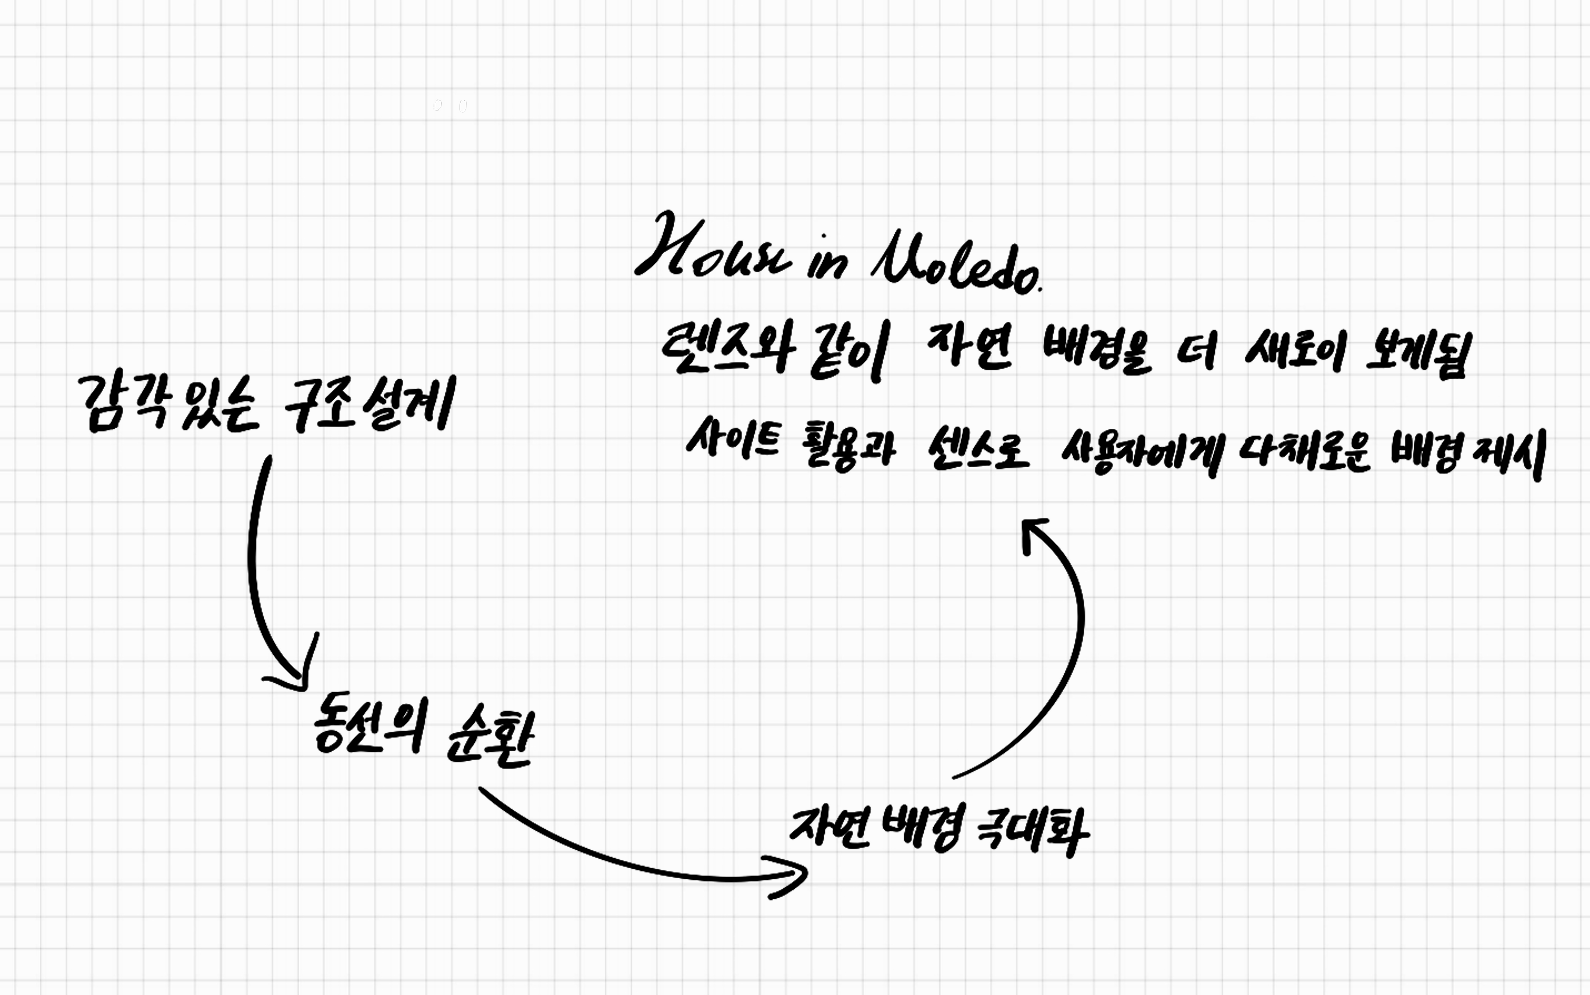 House in Moledo.
렌즈와 같이 자연 배경을 더 새로이 보게됨
사이트 활용과 센스로 사용자에게 다채로운 배경 제시
감각있는 구조설계
동선의 순환
자연 배경 극대화